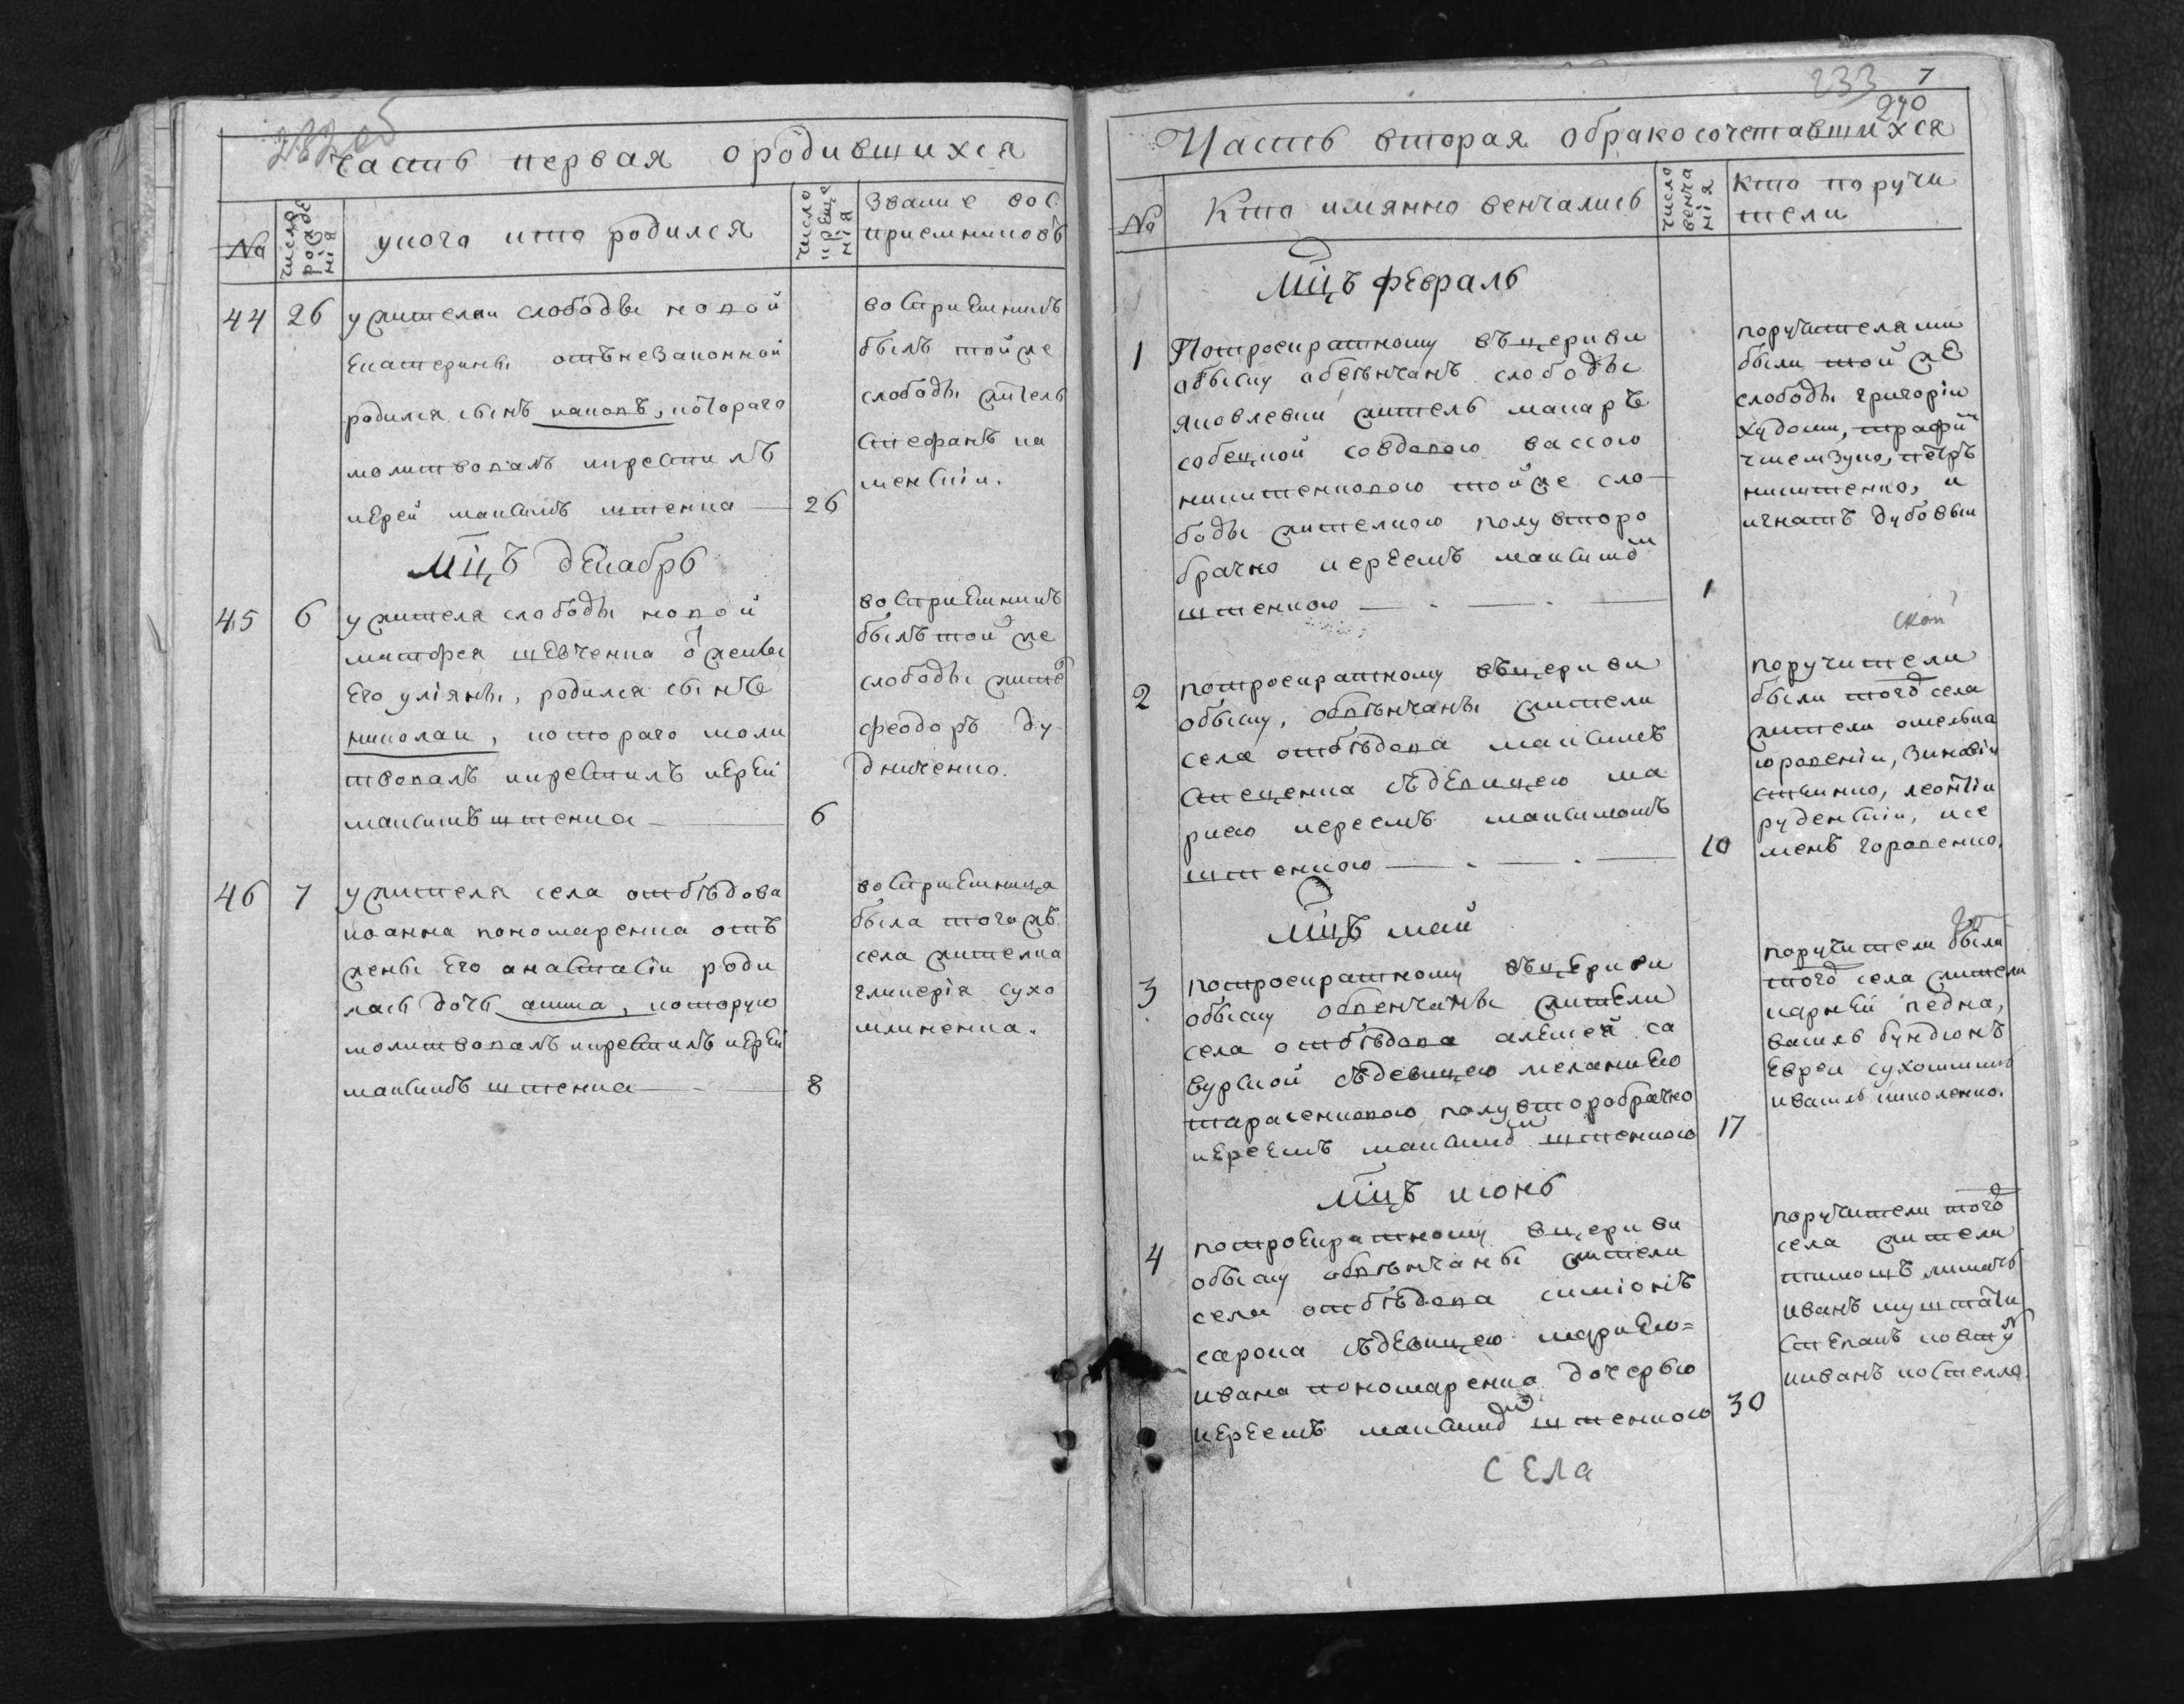 232 об
Часть первая ородившихся
№
число рожде нія
укого кто родился
число креще нія
Званіе вос
приемниковъ
44
26
ужителки слободы новой
Екатерины отънезаконной
родился сынъ каконъ, котораго
молитвовалъ икрестилъ
иерей максимъ штепка
26
восприемникъ
былъ тойже
слободы житель
стефанъ ка
менскіи.
мцъ декабрь
45
6
ужителя слободы новой
матфея шевченка ѿ жены
его уліяны, родился сынъ
николаи, котораго моли
твовалъ икрестилъ иерей
максимъ штепка
6
восприемникъ
былъ тойже
слободы жите
феодоръ ду-
дниченко.
46
7
ужителя села отбѣдова
иоанна пономаренка отъ
жены его анастасіи роди
лась дочь анна, которую
молитвовалъ икрестилъ иерей
максимъ штепка
8
восприемница
была тогожъ
села жителка
гликерія сухо
млиненка.
233
7
240
Часть вторая обракосочетавшихся
№
Кто имянно венчались
число венча нія
Кто поручи
тели
мцъ февраль
1
Потроекратному въцеркви
обыску обвѣнчанъ слободы
яковлевки житель макаръ
собецкой совдовою вассою
никитенковою тойже сло-
боды жителкою полувторо
брачно иереемъ максимо
штепкою
1
поручителями
были тойже
слободы григоріи
худоли,
петръ
никитенко, и
игнатъ дубовыи
2
потроекратному въцеркви
обыску, обвѣнчаны жители
села отбѣдова максимъ
стеценка сдѣвицею ма
риею иереемъ максимомъ
штепкою
10
поручители
были того села
жители омелька
юравскіи, зиновіи
леонтіи
руденскіи, исе
менъ горовенко.
мцъ май
3
потроекратному въцеркви
обыску обвенчаны жители
села отбѣдова алексей са
вурской сдевицею меланиею
тарасенковою полувторобрачно
иереемъ максимо штепкою
17
поручители были
того села жители
карней педка,
василь бундюкъ
ивасиль николенко.
мцъ июнь
4
потроекратному вцеркви
обыску обвѣнчаны жители
села отбѣдова симіонъ
сарока сдѣвицею мариею=
ивана пономаренка дочерью
иереемъ максимо штепкою
30
поручители того
села жители
иванъ
степанъ
ииванъ
села